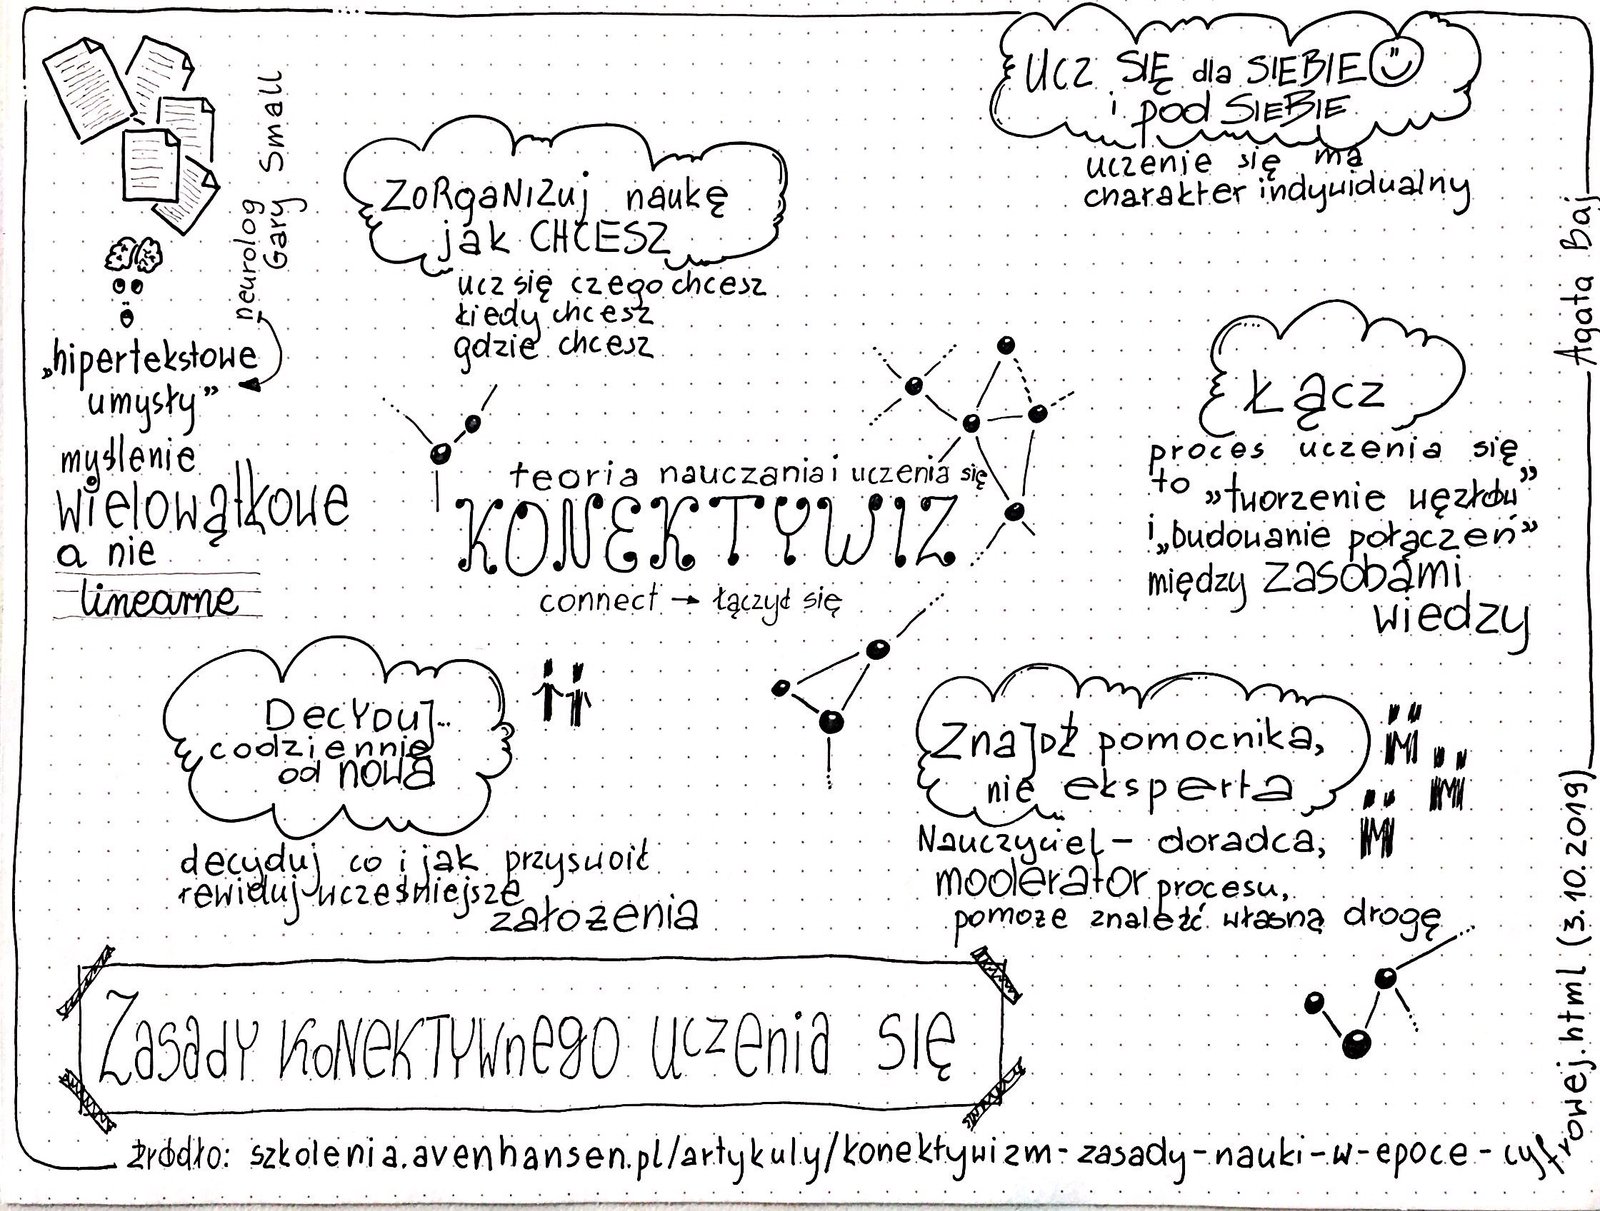 neurolog
Gary Small
„hipertekstowe
umysły”
myślenie
wielowątkowe
a nie
linearne
Zorganizuj naukę
jak CHCESZ
ucz się czego chcesz
kiedy chcesz
gdzie chcesz
Ucz SIĘ dla SIEBIE
i pod SIEBIE
uczenie się ma
charakter indywidualny
Agata Baj
teoria nauczania i uczenia się
KONEKTYWIZ
connect → łączyć się
Łącz
proces uczenia się
to „tworzenie węzłów”
i „budowanie połączeń”
między zasobami
wiedzy
Decyduj...
codziennie
od nowa
decyduj co i jak przyswoić
rewiduj wcześniejsze
założenia
Znajdź pomocnika,
nie eksperta
Nauczyciel – doradca,
moderator procesu,
pomoże znaleźć własną drogę
Zasady konektywnego uczenia się
źródło: szkolenia.avenhansen.pl/artykuly/konektywizm-zasady-nauki-w-epoce-cyfrowej.html (3.10.2019)